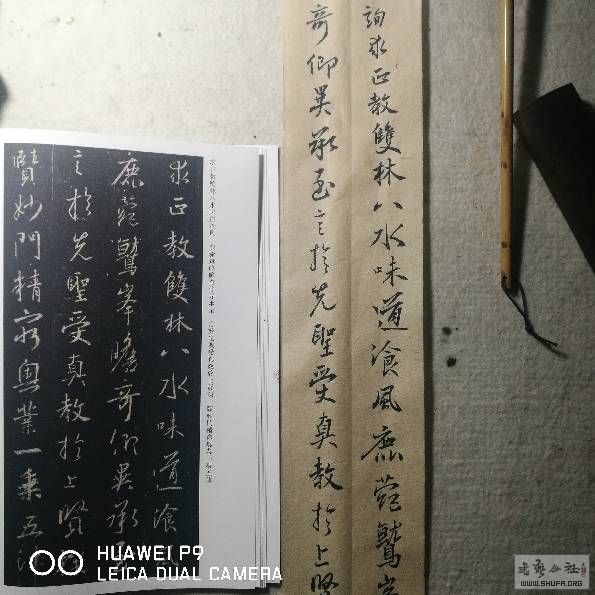 詢求正教雙林八水味道飡風鹿菀鷲峯
奇仰異承至言於先聖受真教於上賢
求正教雙林八水味道飡風
鹿菀鷲峯瞻奇仰異承至
言於先聖受真教於上賢
賾妙門精窮奧業一乘五
HUAWEI P9
LEICA DUAL CAMERA
書法公社
WWW.SHUFA.ORG